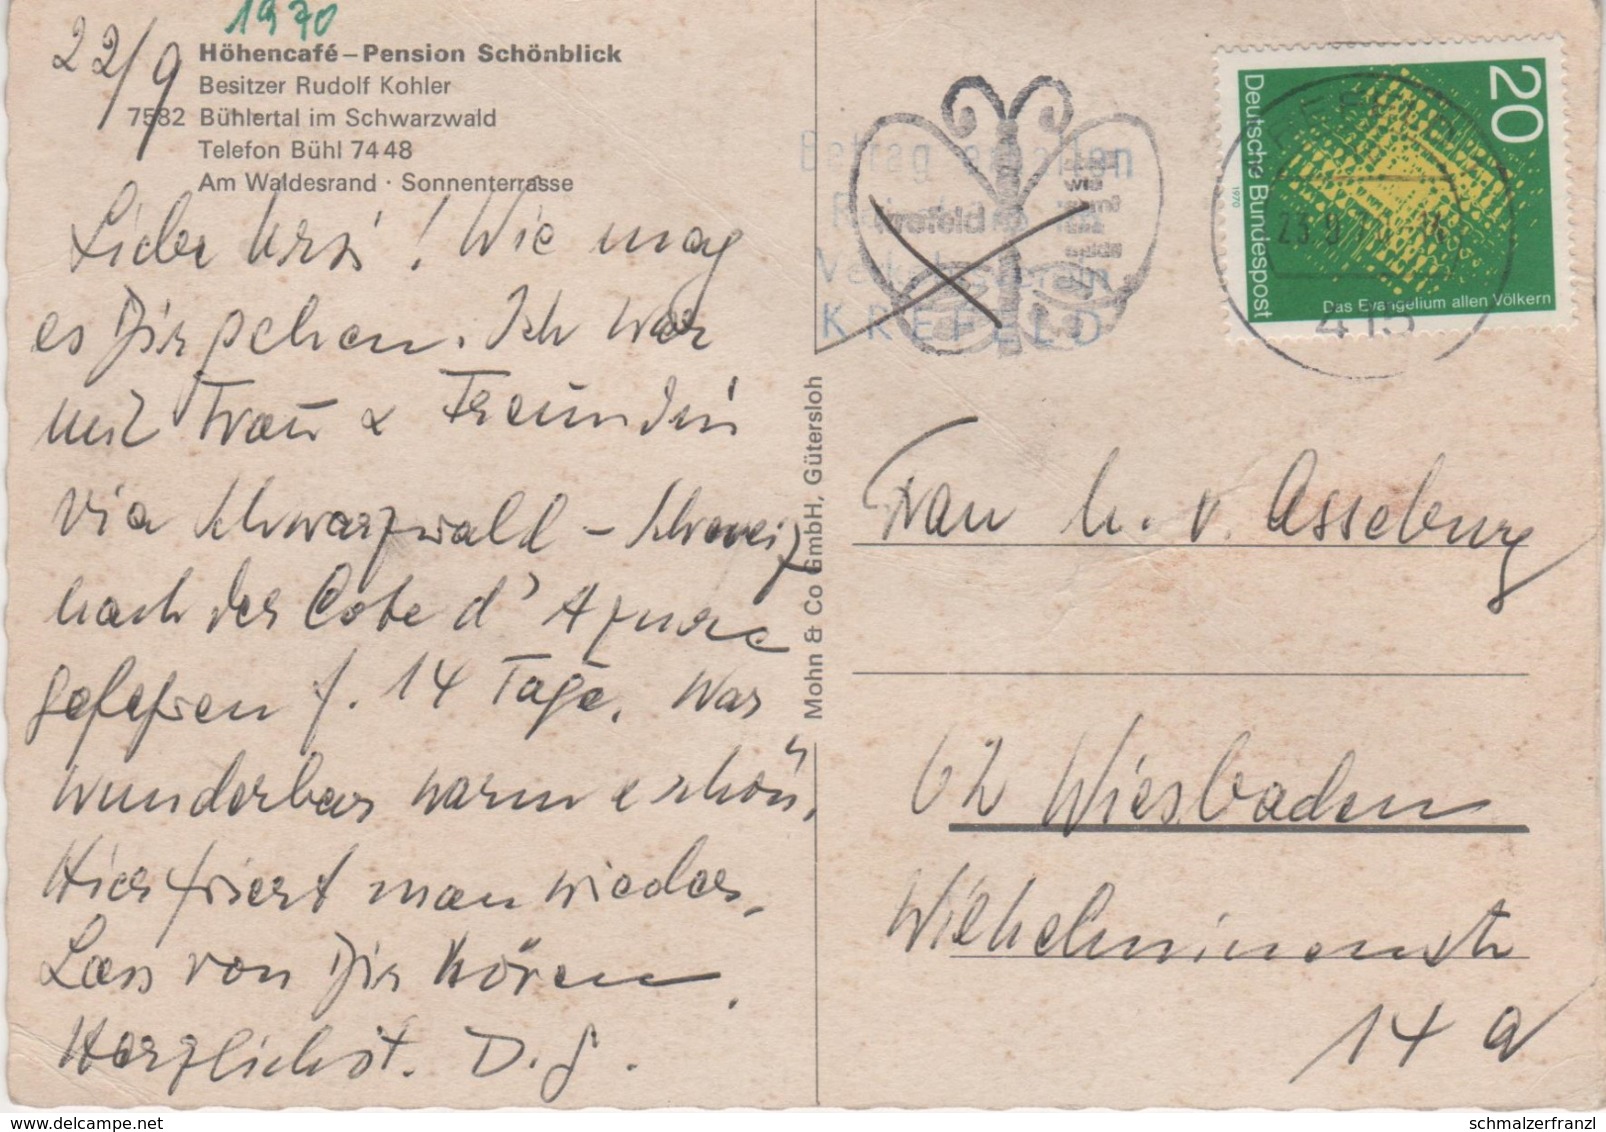 1970
22/9
Höhencafé – Pension Schönblick
Besitzer Rudolf Kohler
7582 Bühlertal im Schwarzwald
Telefon Bühl 74 48
Am Waldesrand · Sonnenterrasse
Liebe Ursi! Wie mag
es Dir gehen. Ich war
mit Frau & Freundin
via Schwarzwald – Schweiz
nach der Cote d'Azure
gefahren f. 14 Tage. War
wunderbar warm & schön.
Hier friert man wieder.
Lass von Dir hören.
Herzlichst. D. J.
Mohn & Co GmbH, Gütersloh
Betrag erhalten
Verkehrsverein
KREFELD
Krefeld
23.9.70
415
20
Deutsche Bundespost
1970
Das Evangelium allen Völkern
Frau U. v. Asseburg
62 Wiesbaden
Wilhelminenstr
14 a
delcampe.net
schmalzerfranzl